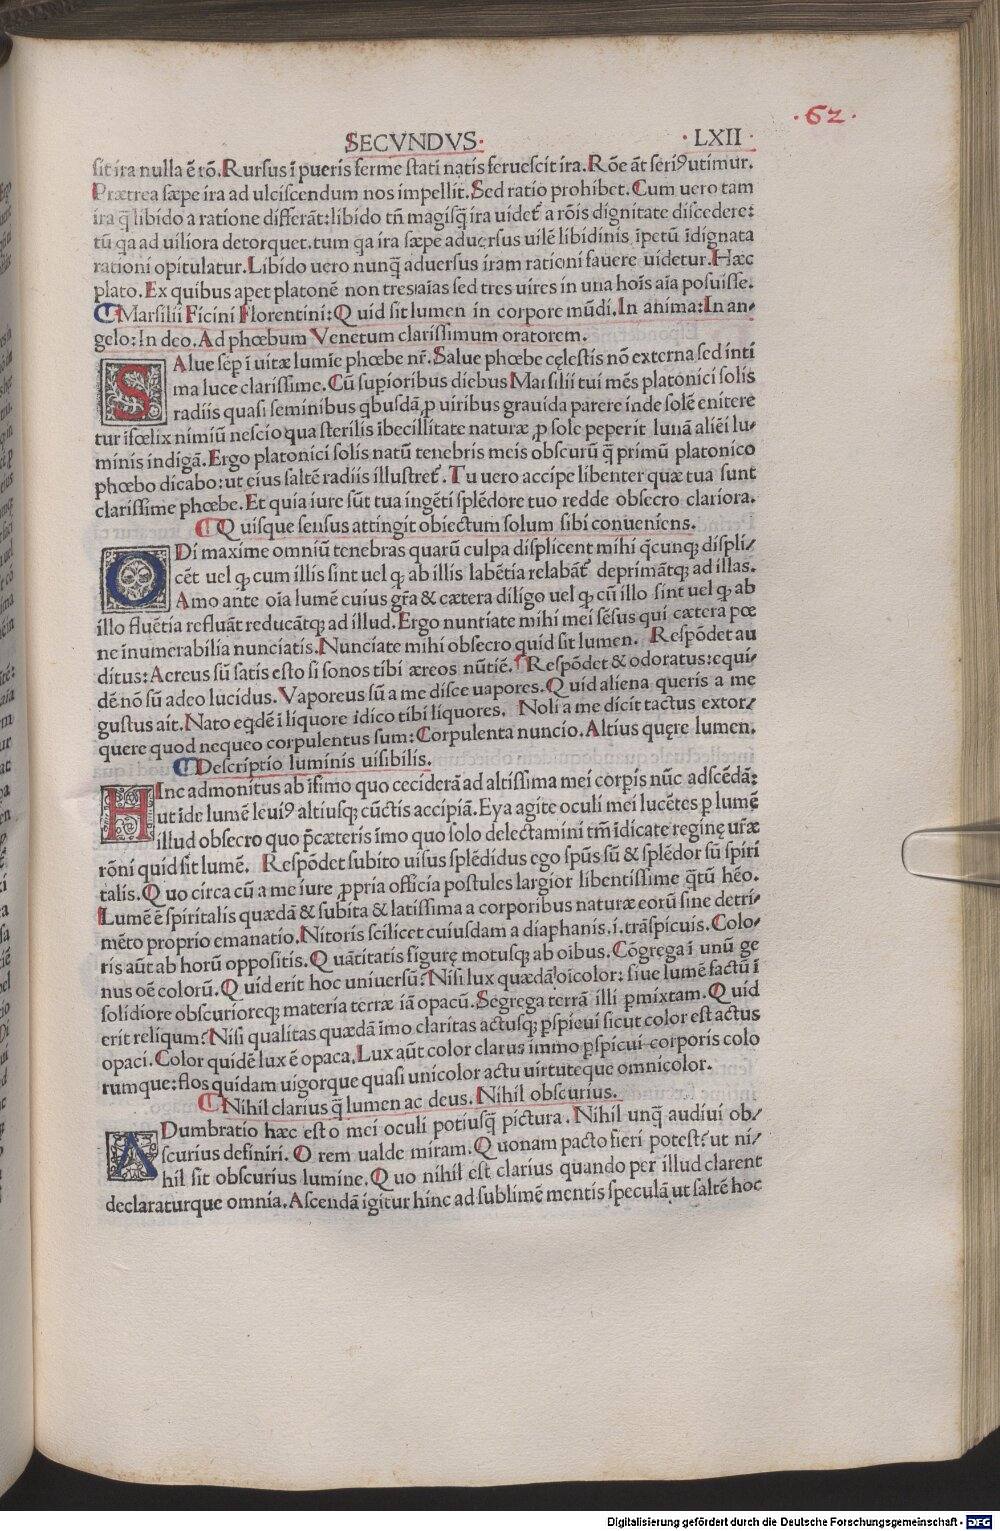 ·62·
SECVNDVS· ·LXII·
sit ira nulla ē rō. Rursus ī pueris ferme stati natis feruescit ira. Rōe āt seriꝰ utimur.
Prætrea sæpe ira ad ulciscendum nos impellit. Sed ratio prohibet. Cum uero tam
ira q̄ libido a ratione differāt: libido tn̄ magisq̄ ira uidet᷑ a rōis dignitate discedere:
tū qa ad uiliora detorquet. tum qa ira sæpe aduersus uilē libidinis īpetū īdignata
rationi opitulatur. Libido uero nunq̄ aduersus iram rationi fauere uidetur. Hæc
plato. Ex quibus apet platonē non tres aīas sed tres uires in una hoīs aīa posuisse.
Marsilii Ficini Florentini: Quid sit lumen in corpore mūdi. In anima: In an-
gelo: In deo. Ad phœbum Venetum clarissimum oratorem.
SAlue sēp ī uitæ lumīe phœbe nr̄. Salue phœbe cęlestis nō externa sed inti
ma luce clarissime. Cū supioribus diebus Marsilii tui mēs platonici solis
radiis quasi seminibus qbusdā ꝓ uiribus grauida parere inde solē enitere
tur īfœlix nimiū nescio qua sterilis ībecillitate naturæ ꝓ sole peperit lunā aliēi lu-
minis indigā. Ergo platonici solis natū tenebris meis obscurū q̄ primū platonico
phœbo dicabo: ut eius saltē radiis illustret᷑. Tu uero accipe libenter quæ tua sunt
clarissime phœbe. Et quia iure sūt tua ingēti splēdore tuo redde obsecro clariora.
Quisque sensus attingit obiectum solum sibi conueniens.
ODi maxime omniū tenebras quarū culpa displicent mihi q̄cunqꝫ displi-
cēt uel qꝫ cum illis sint uel qꝫ ab illis labētia relabāt᷑ deprimātqꝫ ad illas.
Amo ante oīa lumē cuius gr̄a & cætera diligo uel qꝫ cū illo sint uel qꝫ ab
illo fluētia refluāt reducātqꝫ ad illud. Ergo nuntiate mihi mei sēsus qui cætera pœ
ne inumerabilia nunciatis. Nunciate mihi obsecro quid sit lumen. Respōdet au
ditus: Aereus sū satis esto si sonos tibi æreos nūtiē. Respōdet & odoratus: equi-
dē nō sū adeo lucidus. Vaporeus sū a me disce uapores. Quid aliena queris a me
gustus ait. Nato eqdē ī liquore idico tibi liquores. Noli a me dicit tactus extor-
quere quod nequeo corpulentus sum: Corpulenta nuncio. Altius quęre lumen.
Descriptio luminis uisibilis.
HInc admonitus ab īfimo quo ceciderā ad altissima mei corpīs nūc adscēdā:
ut īde lumē leuiꝰ altiusqꝫ cūctis accipiā. Eya agite oculi mei lucētes ꝑ lumē
illud obsecro quo p̄cæteris īmo quo solo delectamini tm̄ īdicate reginę ur̄æ
rōni quid sit lumē. Respōdet subito uisus splēdidus ego spūs sū & splēdor sū spiri
talis. Quo circa cū a me iure ꝓpria officia postules largior libentissime q̄tū hēo.
Lumē ē spiritalis quædā & subita & latissima a corporibus naturæ eorū sine detri-
mēto proprio emanatio. Nitoris scilicet cuiusdam a diaphanis. i. trāspicuis. Colo-
ris aūt ab horū oppositis. Quātitatis figurę motusqꝫ ab oībus. Cōgrega ī unū ge
nus oē colorū. Quid erit hoc uniuersū? Nisi lux quædā oīcolor: siue lumē factū ī
solidiore obscurioreqꝫ materia terræ iā opacū. Segrega terrā illi ꝑmixtam. Quid
erit reliqum? Nisi qualitas quædā īmo claritas actusqꝫ ꝑspicui sicut color est actus
opaci. Color quidē lux ē opaca. Lux aūt color clarus immo ꝑspicui corporis colo
rumque: flos quidam uigorque quasi unicolor actu uirtuteque omnicolor.
Nihil clarius q̄ lumen ac deus. Nihil obscurius.
ADumbratio hæc est o mei oculi potiusq̄ pictura. Nihil unq̄ audiui ob-
scurius definiri. O rem ualde miram. Quonam pacto fieri potest? ut ni-
hil sit obscurius lumine. Quo nihil est clarius quando per illud clarent
declaraturque omnia. Ascendā igitur hinc ad sublimē mentis speculā ut saltē hoc
Digitalisierung gefördert durch die Deutsche Forschungsgemeinschaft - DFG